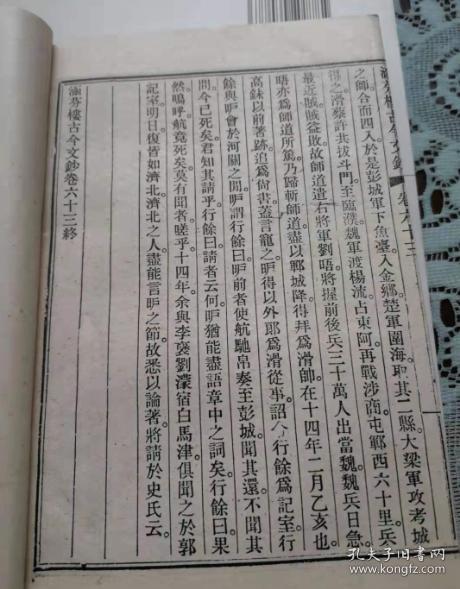 涵芬樓古今文鈔 卷六十三
之師合而四入於是彭城軍下魚臺入金鄉楚軍圍海取其二縣大梁軍攻考城
得之滑蔡許共拔斗門至臨濮魏軍渡楊流占東阿再戰涉商屯鄆西六十里兵
最近賊賊益敗故師道遣右將軍劉晤將握前後兵三十萬人出當魏魏兵日急
晤亦為師道所篤乃歸斬師道盡以鄆城降得拜為滑帥在十四年二月乙亥也
高銖以前著跡追為尚書蓋言寵之昈得以外耶為滑從事詔令行餘為記室行
餘與昈會於河關之閒昈謂行餘曰昈前者使航馳帛奏至彭城聞其還不聞其
問今已死矣君知其請乎行餘曰請者云何昈猶能盡語章中之詞矣行餘曰果
然嗚呼航竟死矣莫有聞者嗟乎十四年余與李裒劉濛宿白馬津俱聞之於郭
記室明日復皆如濟北濟北之人盡能言昈之節故悉以論著將請於史氏云
涵芬樓古今文鈔卷六十三終
孔夫子旧书网
www.kongfz.com